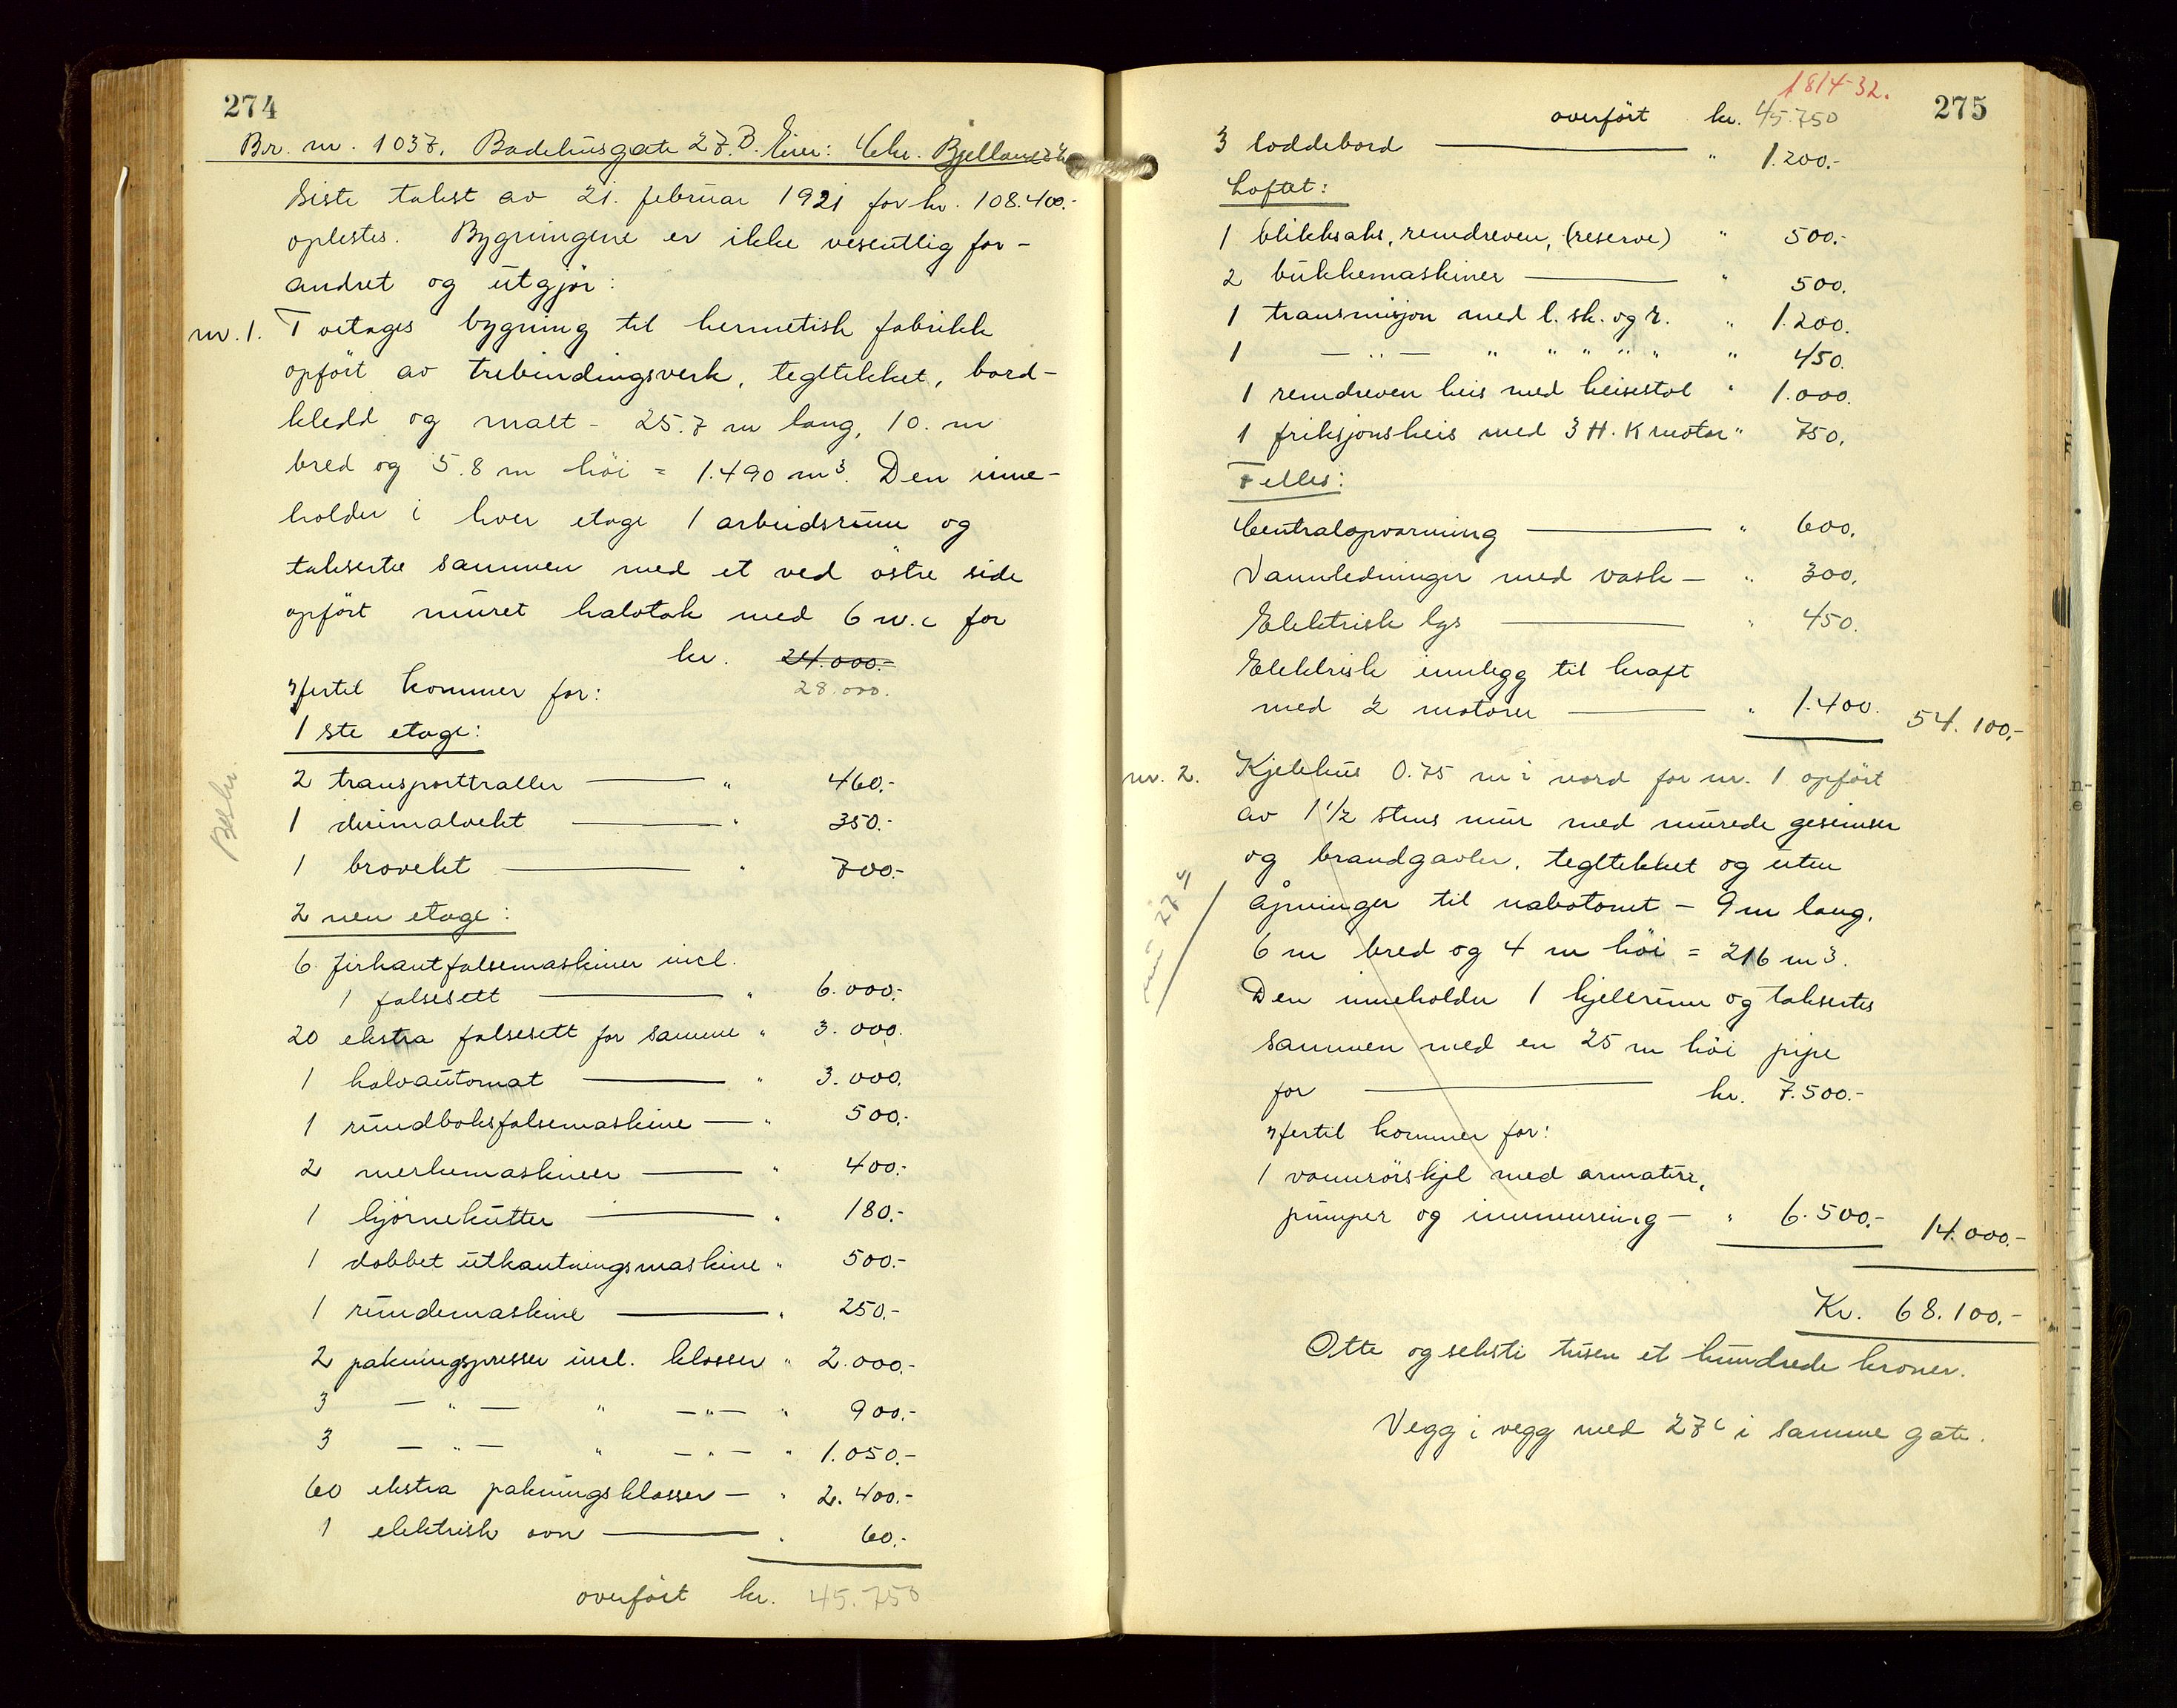 274
Br. nr. 1037. Badehusgate 27.B. Eier: Chr. Bjelland &
Siste takst av 21. februar 1921 for kr. 108.400.-
oplestes. Bygningene er ikke vesentlig for-
andret og utgjør:
nr. 1. Toetages bygning til hermetisk fabrikk
opført av trebindingsverk, tegltekket, bord-
kledd og malt - 25.7 m lang, 10. m
bred og 5.8 m höi = 1.490 m³. Den inne-
holder i hver etage 1 arbeidsrum og
takserte sammen med et ved östre side
opfört muret halvtak med 6 w.c for
kr. 24.000.-
28.000.
Hertil kommer for:
1 ste etage:
2 transporttraller — " 460.-
1 desimalvekt — " 350.-
1 brovekt — " 700.-
Beskr.
2 nen etage:
6 firkantfalsemaskiner incl.
1 falsesett — " 6.000.-
20 ekstra falsesett for samme " 3.000.
1 halvautomat — " 3.000.
1 rundboksfalsemaskine — " 500.-
2 merkemaskiner — " 400.-
1 hjörnekutter — " 180.-
1 dobbet utkantningsmaskine " 500.-
1 rundemaskine — " 250.-
2 pakningspresser incl. klosser " 2.000.-
3 — " — " — " — " 900.-
3 — " — " — " — " 1.050.-
60 ekstra pakningsklosser — " 2.400.-
1 elektrisk ovn — " 60.-
overfört kr. 45.750
1814-32.
275
overfört kr. 45.750
3 loddebord — " 1.200.-
Loftet:
1 blikksaks, remdreven, (reserve) " 500.-
2 bukkemaskiner — " 500.
1 transmisjon med l. sk. og r. " 1.200.
1 — " — " " " " " " 450.
1 remdreven heis med heisestol " 1.000.
1 friksjonsheis med 3 H.K motor " 750.
Felles:
Centralopvarming — " 600.
Vannledninger med vask — " 300.
Elektrisk lys — " 450.
Elektrisk innlegg til kraft
med 2 motorer — " 1.400. 54.100.-
nr. 2. Kjelehus 0.75 m i nord for nr. 1 opfört
av 1 1/2 stens mur med murede gesimser
og brandgavler, tegltekket og uten
åpninger til nabotomt - 9 m lang,
6 m bred og 4 m höi = 216 m3.
Den inneholder 1 kjellrum og taksertes
sammen med en 25 m höi pipe
for — kr. 7.500.-
Hertil kommer for:
1 vannrörskjel med armature,
pumper og innmuring — " 6.500.- 14.000.-
Kr. 68.100.-
Otte og seksti tusen et hundrede kroner.
Vegg i vegg med 27c i samme gate.